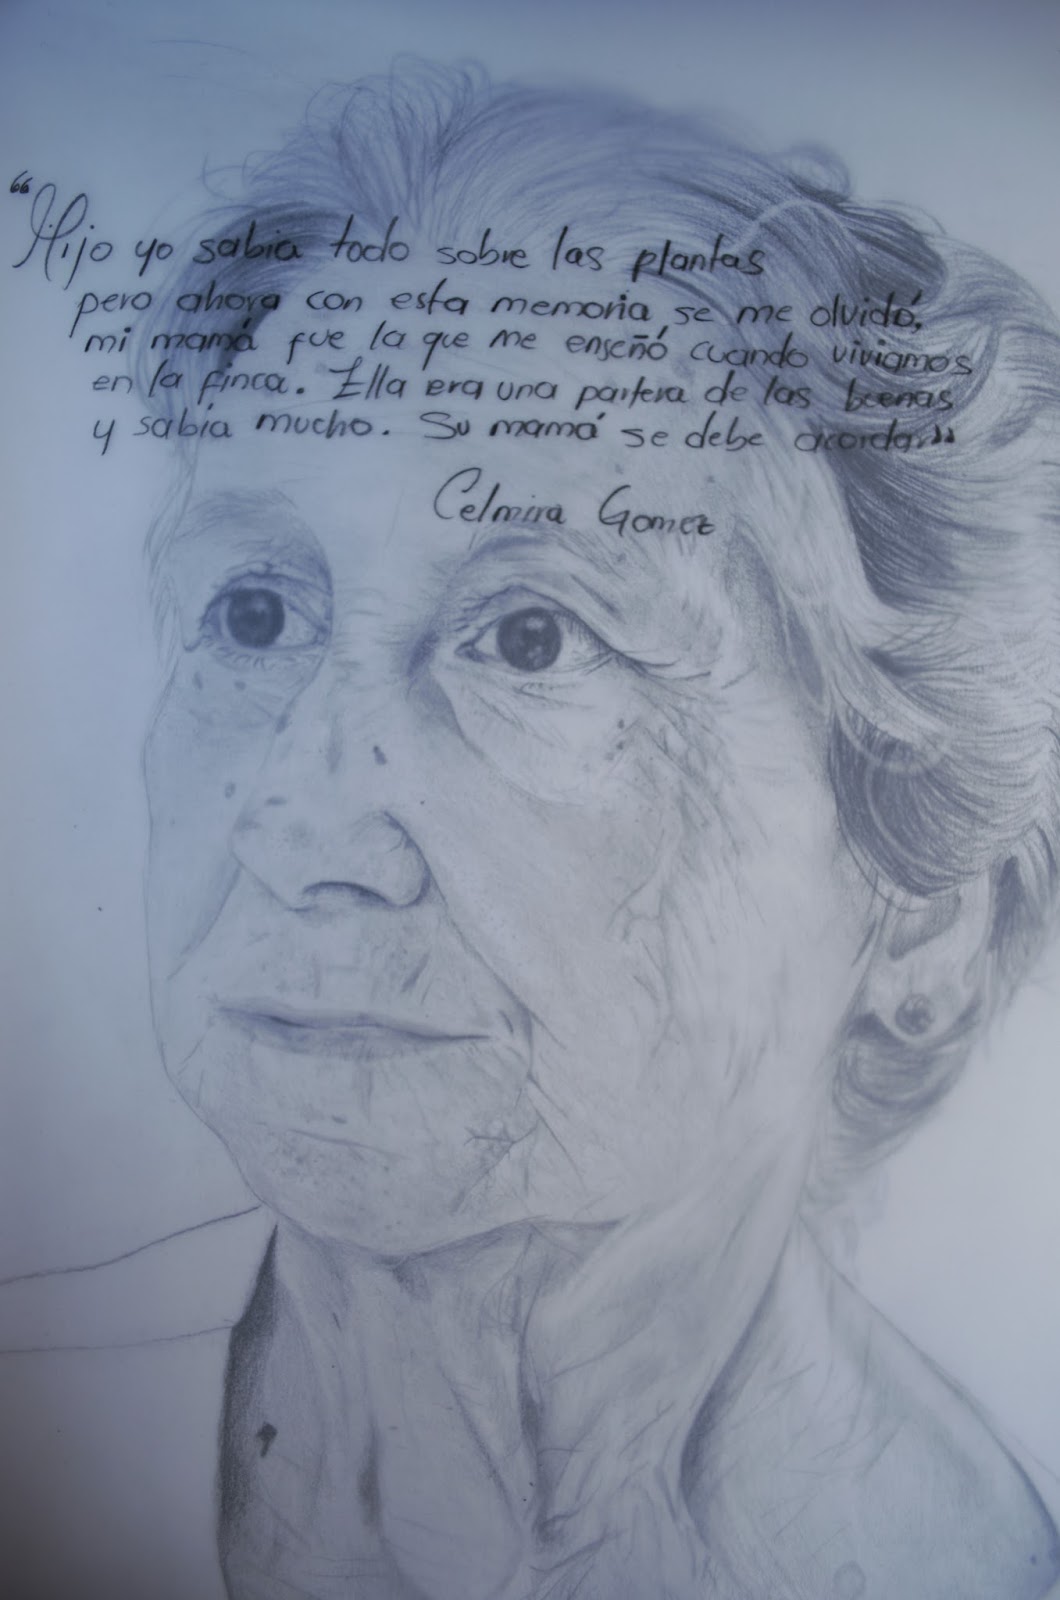 “Hijo yo sabia todo sobre las plantas
pero ahora con esta memoria se me olvidó,
mi mamá fue la que me enseñó cuando viviamos
en la finca. Ella era una partera de las buenas
y sabía mucho. Su mamá se debe acordar”
Celmira Gomez